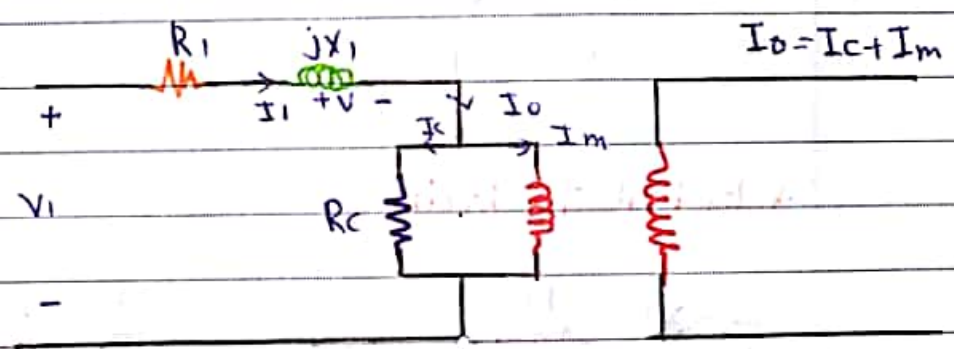 R1 jX1 I0=Ic+Im
+ I1 +V - I0
Ic Im
V1 Rc
-